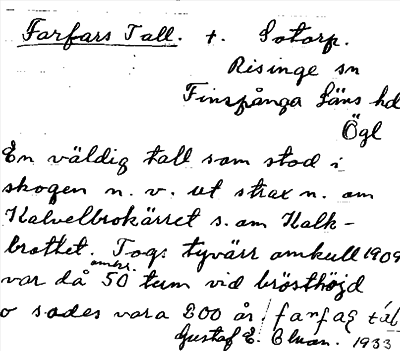 Farfars Tall. t. Sotorp.
Risinge sn
Finspånga Läns hd
Ögl
En väldig tall som stod i
skogen n. v. ut strax n. om
Kalvelbrokärret s. om Kalk-
brottet. Togs tyvärr omkull 1909
omkr.
var då 50 tum vid brösthöjd
o sades vara 200 år.
Gustaf E. 1933